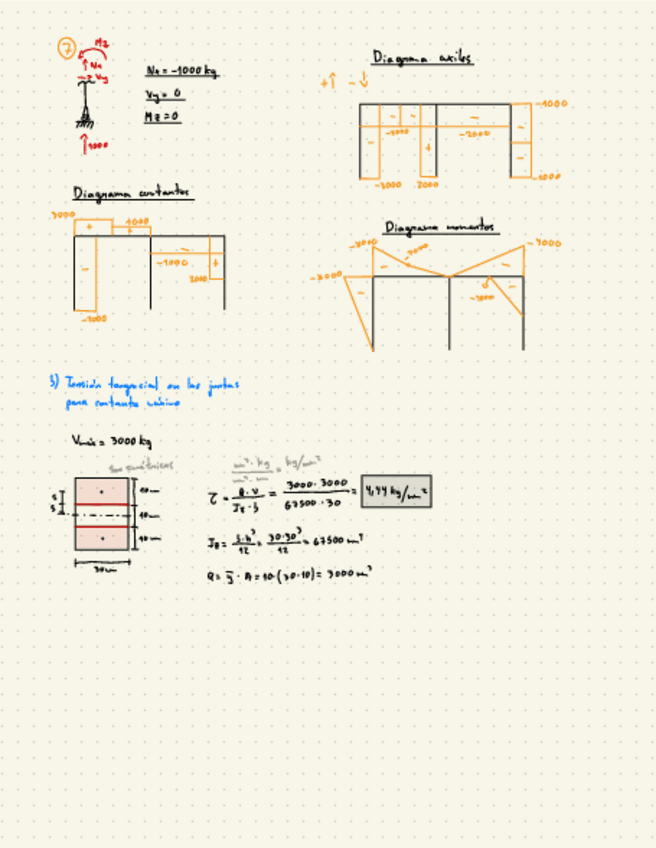 7
Mz
Nx
Vy
1000
Nx = -1000 kg
Vy = 0
Mz = 0
Diagrama axiles
+↑ -↓
-1000
-2000
-2000
-3000
2000
-1000
Diagrama cortantes
3000
1000
+
+
-
-
+
-1000
2000
-3000
Diagrama momentos
-3000
-3000
-
-
-
-3000
3) Tensión tangencial en las juntas
para cortante máximo
Vmáx = 3000 kg
son simétricas
m³ · kg / m⁴ · m = kg/m²
5
5
10 cm
10 cm
10 cm
30 cm
τ = Q · V / Jz · b = 3000 · 3000 / 67500 · 30 = 4,44 kg/cm²
Jz = b · h³ / 12 = 30 · 30³ / 12 = 67500 cm⁴
Q = ȳ · A = 10 · (30 · 10) = 3000 cm³